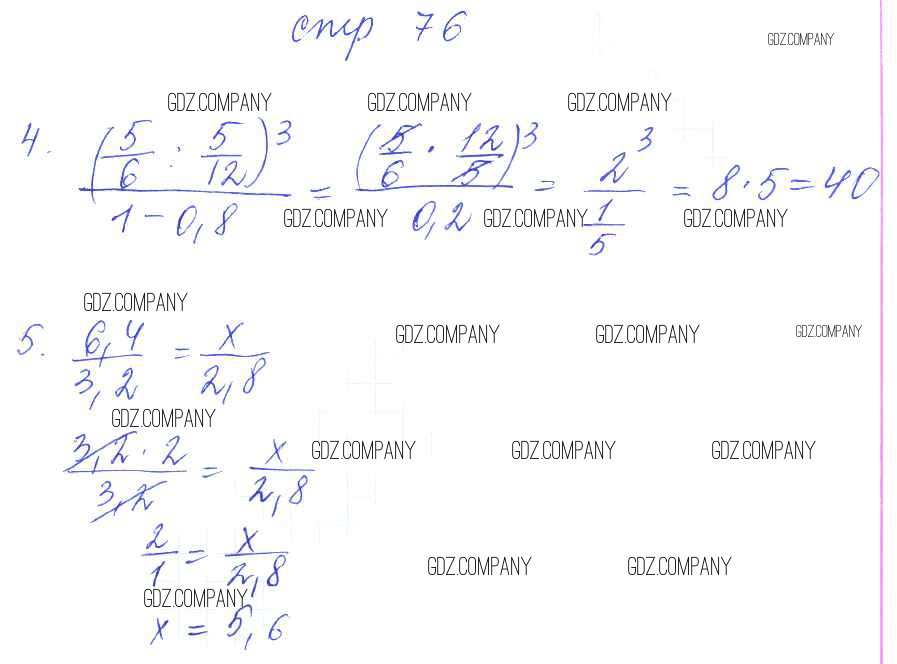 стр 76
GDZ.COMPANY
GDZ.COMPANY GDZ.COMPANY GDZ.COMPANY
4. (5/6 : 5/12)³ / (1 - 0,8) = (5/6 · 12/5)³ / 0,2 = 2³ / (1/5) = 8 · 5 = 40
GDZ.COMPANY GDZ.COMPANY GDZ.COMPANY
GDZ.COMPANY
5. 6,4/3,2 = x/2,8
GDZ.COMPANY GDZ.COMPANY GDZ.COMPANY
GDZ.COMPANY
3,2 · 2/3,2 = x/2,8
GDZ.COMPANY GDZ.COMPANY GDZ.COMPANY
2/1 = x/2,8
GDZ.COMPANY GDZ.COMPANY
GDZ.COMPANY
x = 5,6